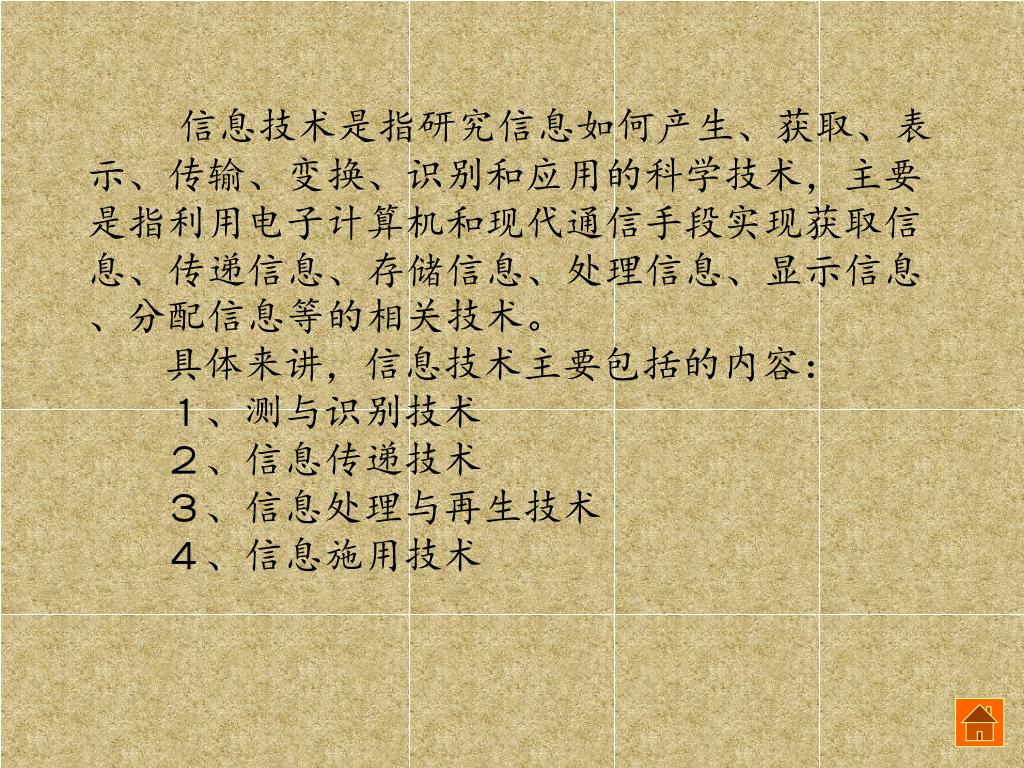 信息技术是指研究信息如何产生、获取、表
示、传输、变换、识别和应用的科学技术，主要
是指利用电子计算机和现代通信手段实现获取信
息、传递信息、存储信息、处理信息、显示信息
、分配信息等的相关技术。
具体来讲，信息技术主要包括的内容：
１、测与识别技术
２、信息传递技术
３、信息处理与再生技术
４、信息施用技术